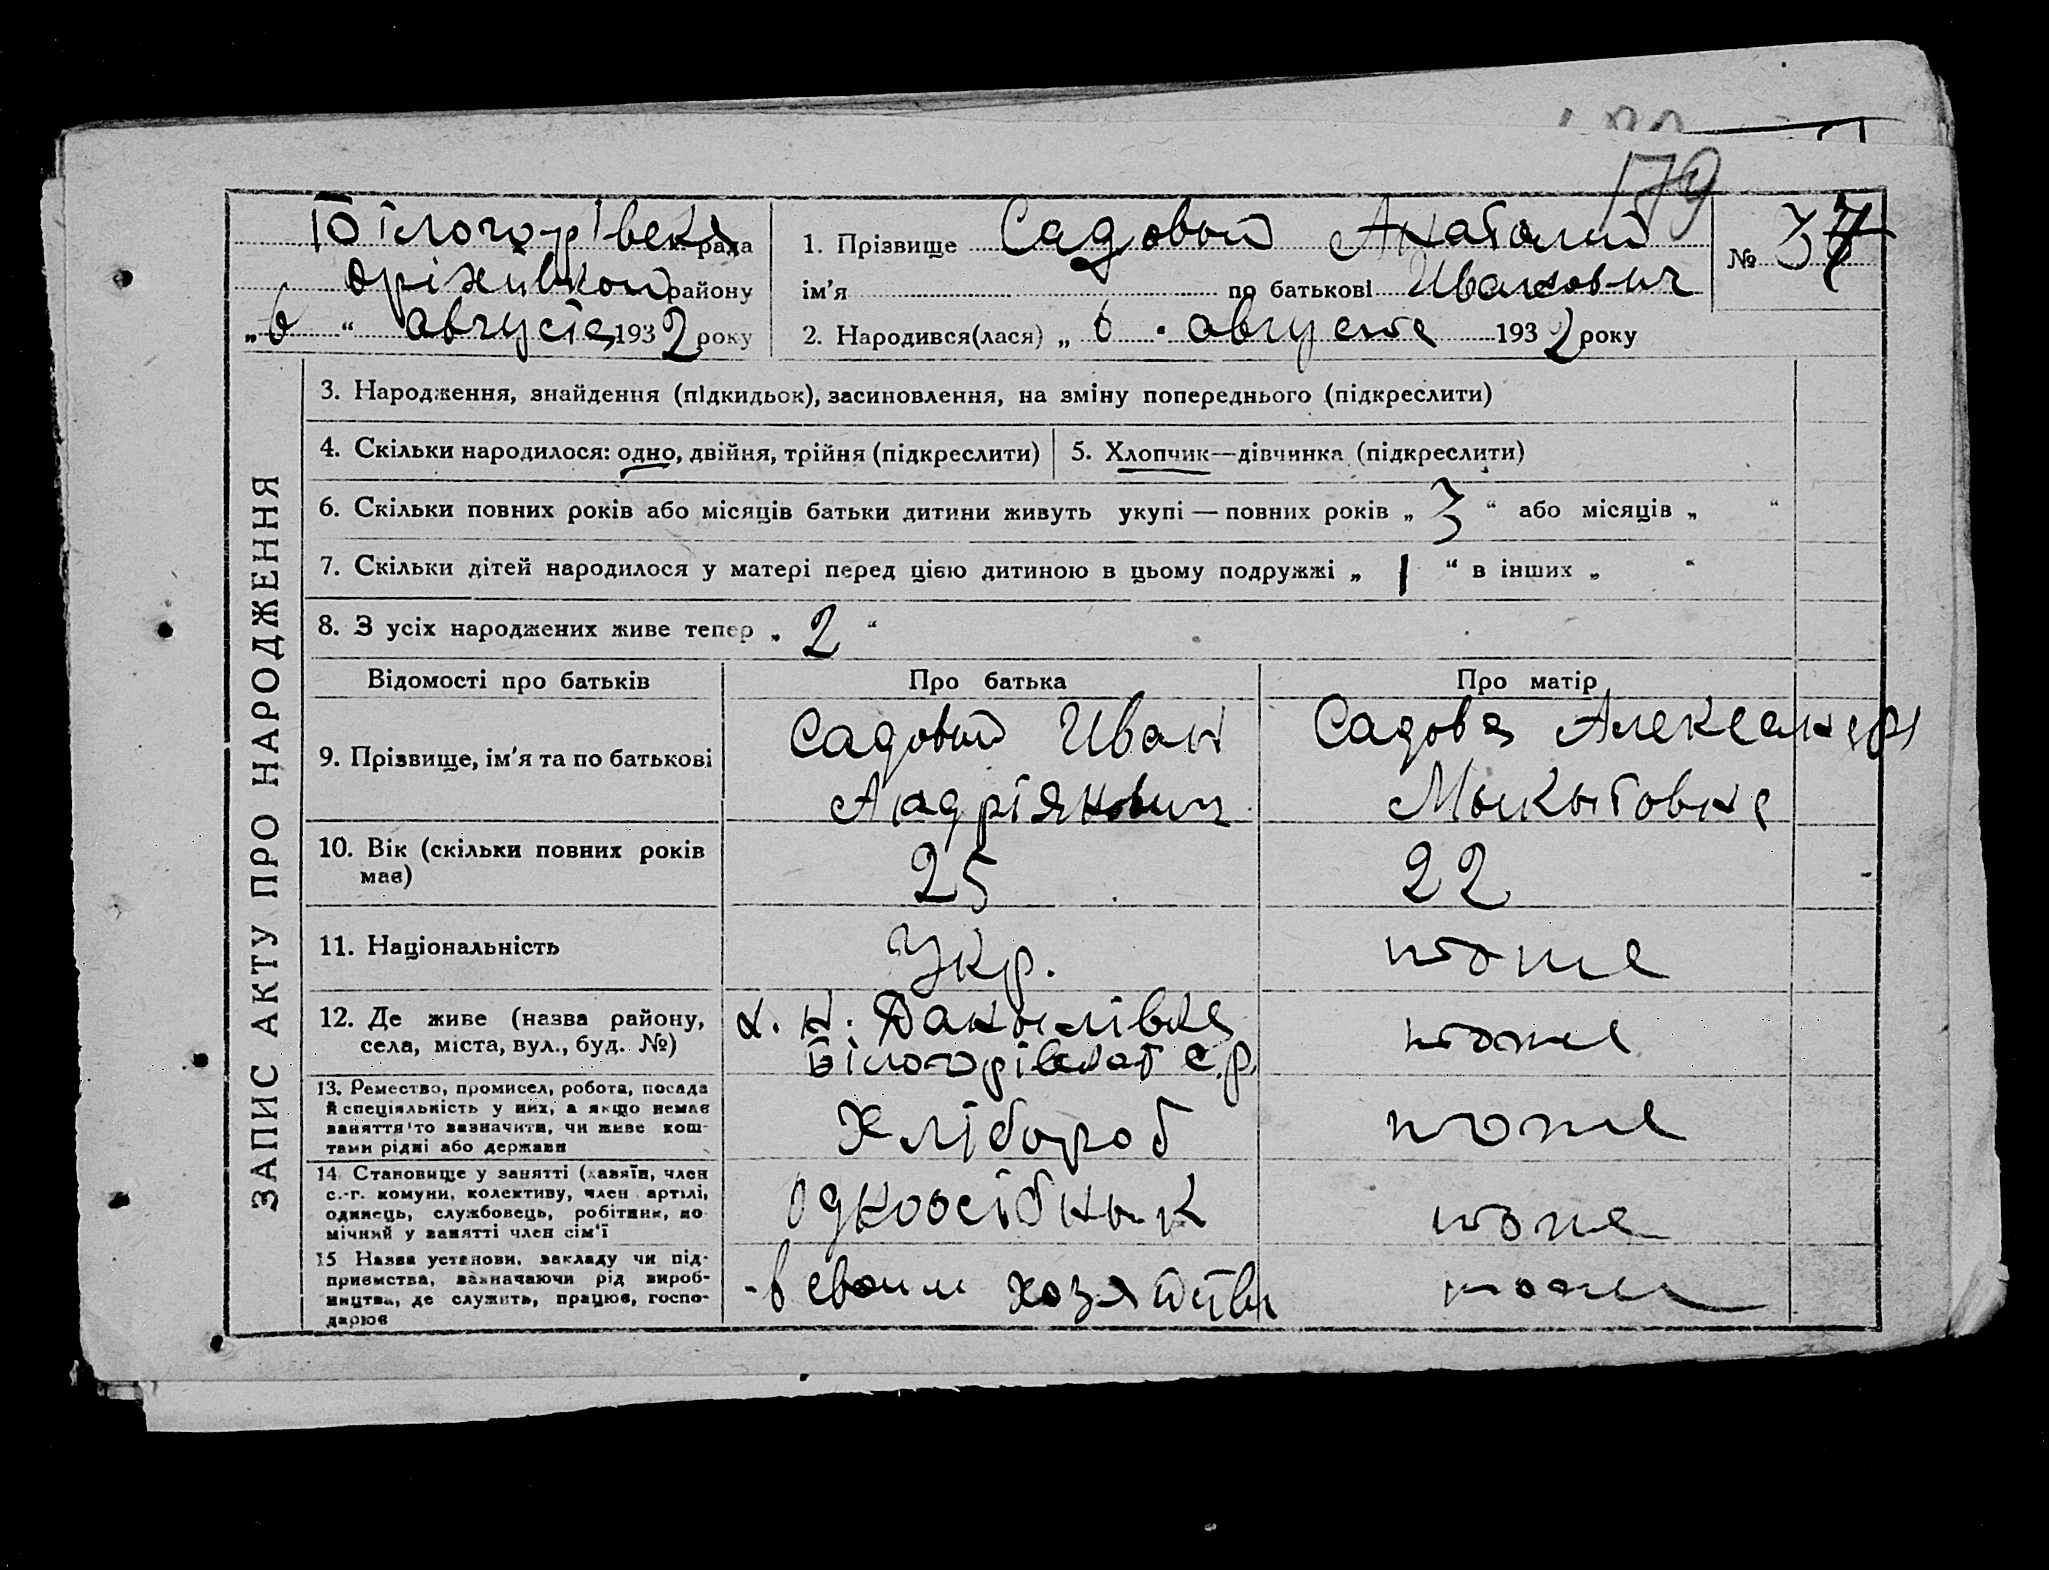 179
Білогорівска рада
Оріхівском району
„6“ августа 1932 року
1. Прізвище Садовый Анатолий
ім’я по батькові Иванович
№ 37
2. Народився(лася) „ 6 . августа 1932 року
ЗАПИС АКТУ ПРО НАРОДЖЕННЯ
3. Народження, знайдення (підкидьок), засиновлення, на зміну попереднього (підкреслити)
4. Скільки народилося: одно, двійня, трійня (підкреслити)
5. Хлопчик—дівчинка (підкреслити)
6. Скільки повних років або місяців батьки дитини живуть укупі — повних років „ 3 “ або місяців „ “
7. Скільки дітей народилося у матері перед цією дитиною в цьому подружжі „ 1 “ в інших „ “
8. З усіх народжених живе тепер „ 2 “
Відомості про батьків
Про батька
Про матір
9. Прізвище, ім’я та по батькові
Садовый Иван
Андріянович
Садова Александра
Мыкытовна
10. Вік (скільки повних років
має)
25
22
11. Національність
Укр.
тоже
12. Де живе (назва району,
села, міста, вул., буд. №)
х. Н. Данылівка
Білогорівскоб с.р.
тоже
13. Ремество, промисел, робота, посада
й спеціяльність у них, а якщо немає
заняття то зазначити, чи живе кош-
тами рідні або держави
Хлібороб
тоже
14. Становище у занятті (хазяїн, член
с.-г. комуни, колективу, член артілі,
одинець, службовець, робітник, по
мічний у занятті член сім’ї
Одноосібнык
тоже
15 Назва установи, закладу чи під-
приємства, зазначаючи рід вироб-
ництва, де служить, працює, госпо-
дарює
- в своим хозяйстви
тоже